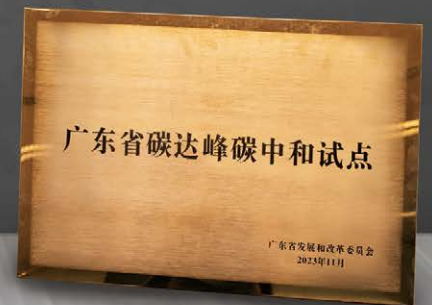 广东省碳达峰碳中和试点
广东省发展和改革委员会
2023年11月